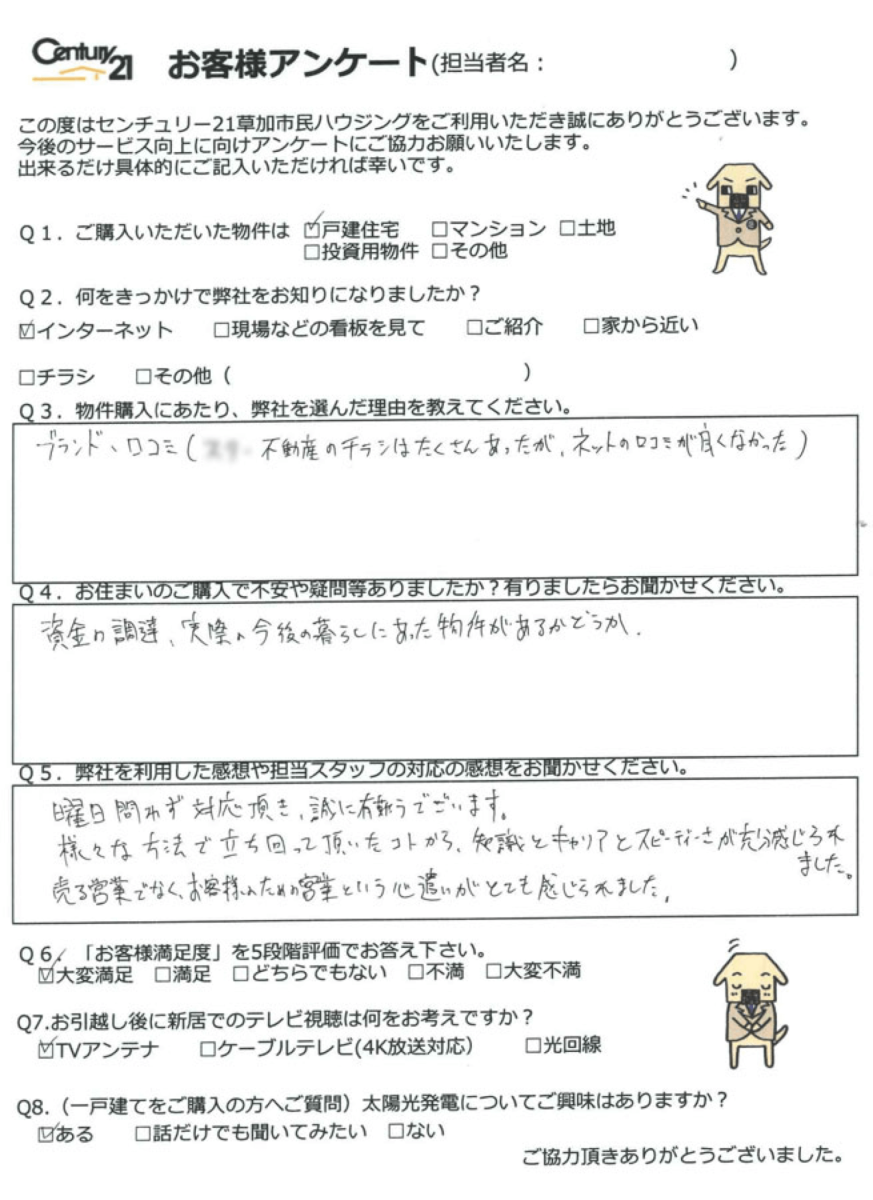 Century 21 お客様アンケート(担当者名： )
この度はセンチュリー21草加市民ハウジングをご利用いただき誠にありがとうございます。
今後のサービス向上に向けアンケートにご協力お願いいたします。
出来るだけ具体的にご記入いただければ幸いです。
Q１．ご購入いただいた物件は ☑戸建住宅 □マンション □土地
□投資用物件 □その他
Q２．何をきっかけで弊社をお知りになりましたか？
☑インターネット □現場などの看板を見て □ご紹介 □家から近い
□チラシ □その他（ ）
Q３．物件購入にあたり、弊社を選んだ理由を教えてください。
ブランド、口コミ( 不動産のチラシはたくさんあったが、ネットの口コミが良くなかった)
Q４．お住まいのご購入で不安や疑問等ありましたか？有りましたらお聞かせください。
資金の調達、実際の今後の暮らしにあった物件があるかどうか.
Q５．弊社を利用した感想や担当スタッフの対応の感想をお聞かせください。
曜日問わず対応頂き、誠に有難うでざいます。
様々な方法で立ち回って頂いたコトから、知識とキャリアとスピーディーさが充分感じられ
ました。
売る営業でなく、お客様のための営業という心遣いがとても感じられました。
Q６．「お客様満足度」を5段階評価でお答え下さい。
☑大変満足 □満足 □どちらでもない □不満 □大変不満
Q7.お引越し後に新居でのテレビ視聴は何をお考えですか？
☑TVアンテナ □ケーブルテレビ(4K放送対応） □光回線
Q8.（一戸建てをご購入の方へご質問）太陽光発電についてご興味はありますか？
☑ある □話だけでも聞いてみたい □ない
ご協力頂きありがとうございました。